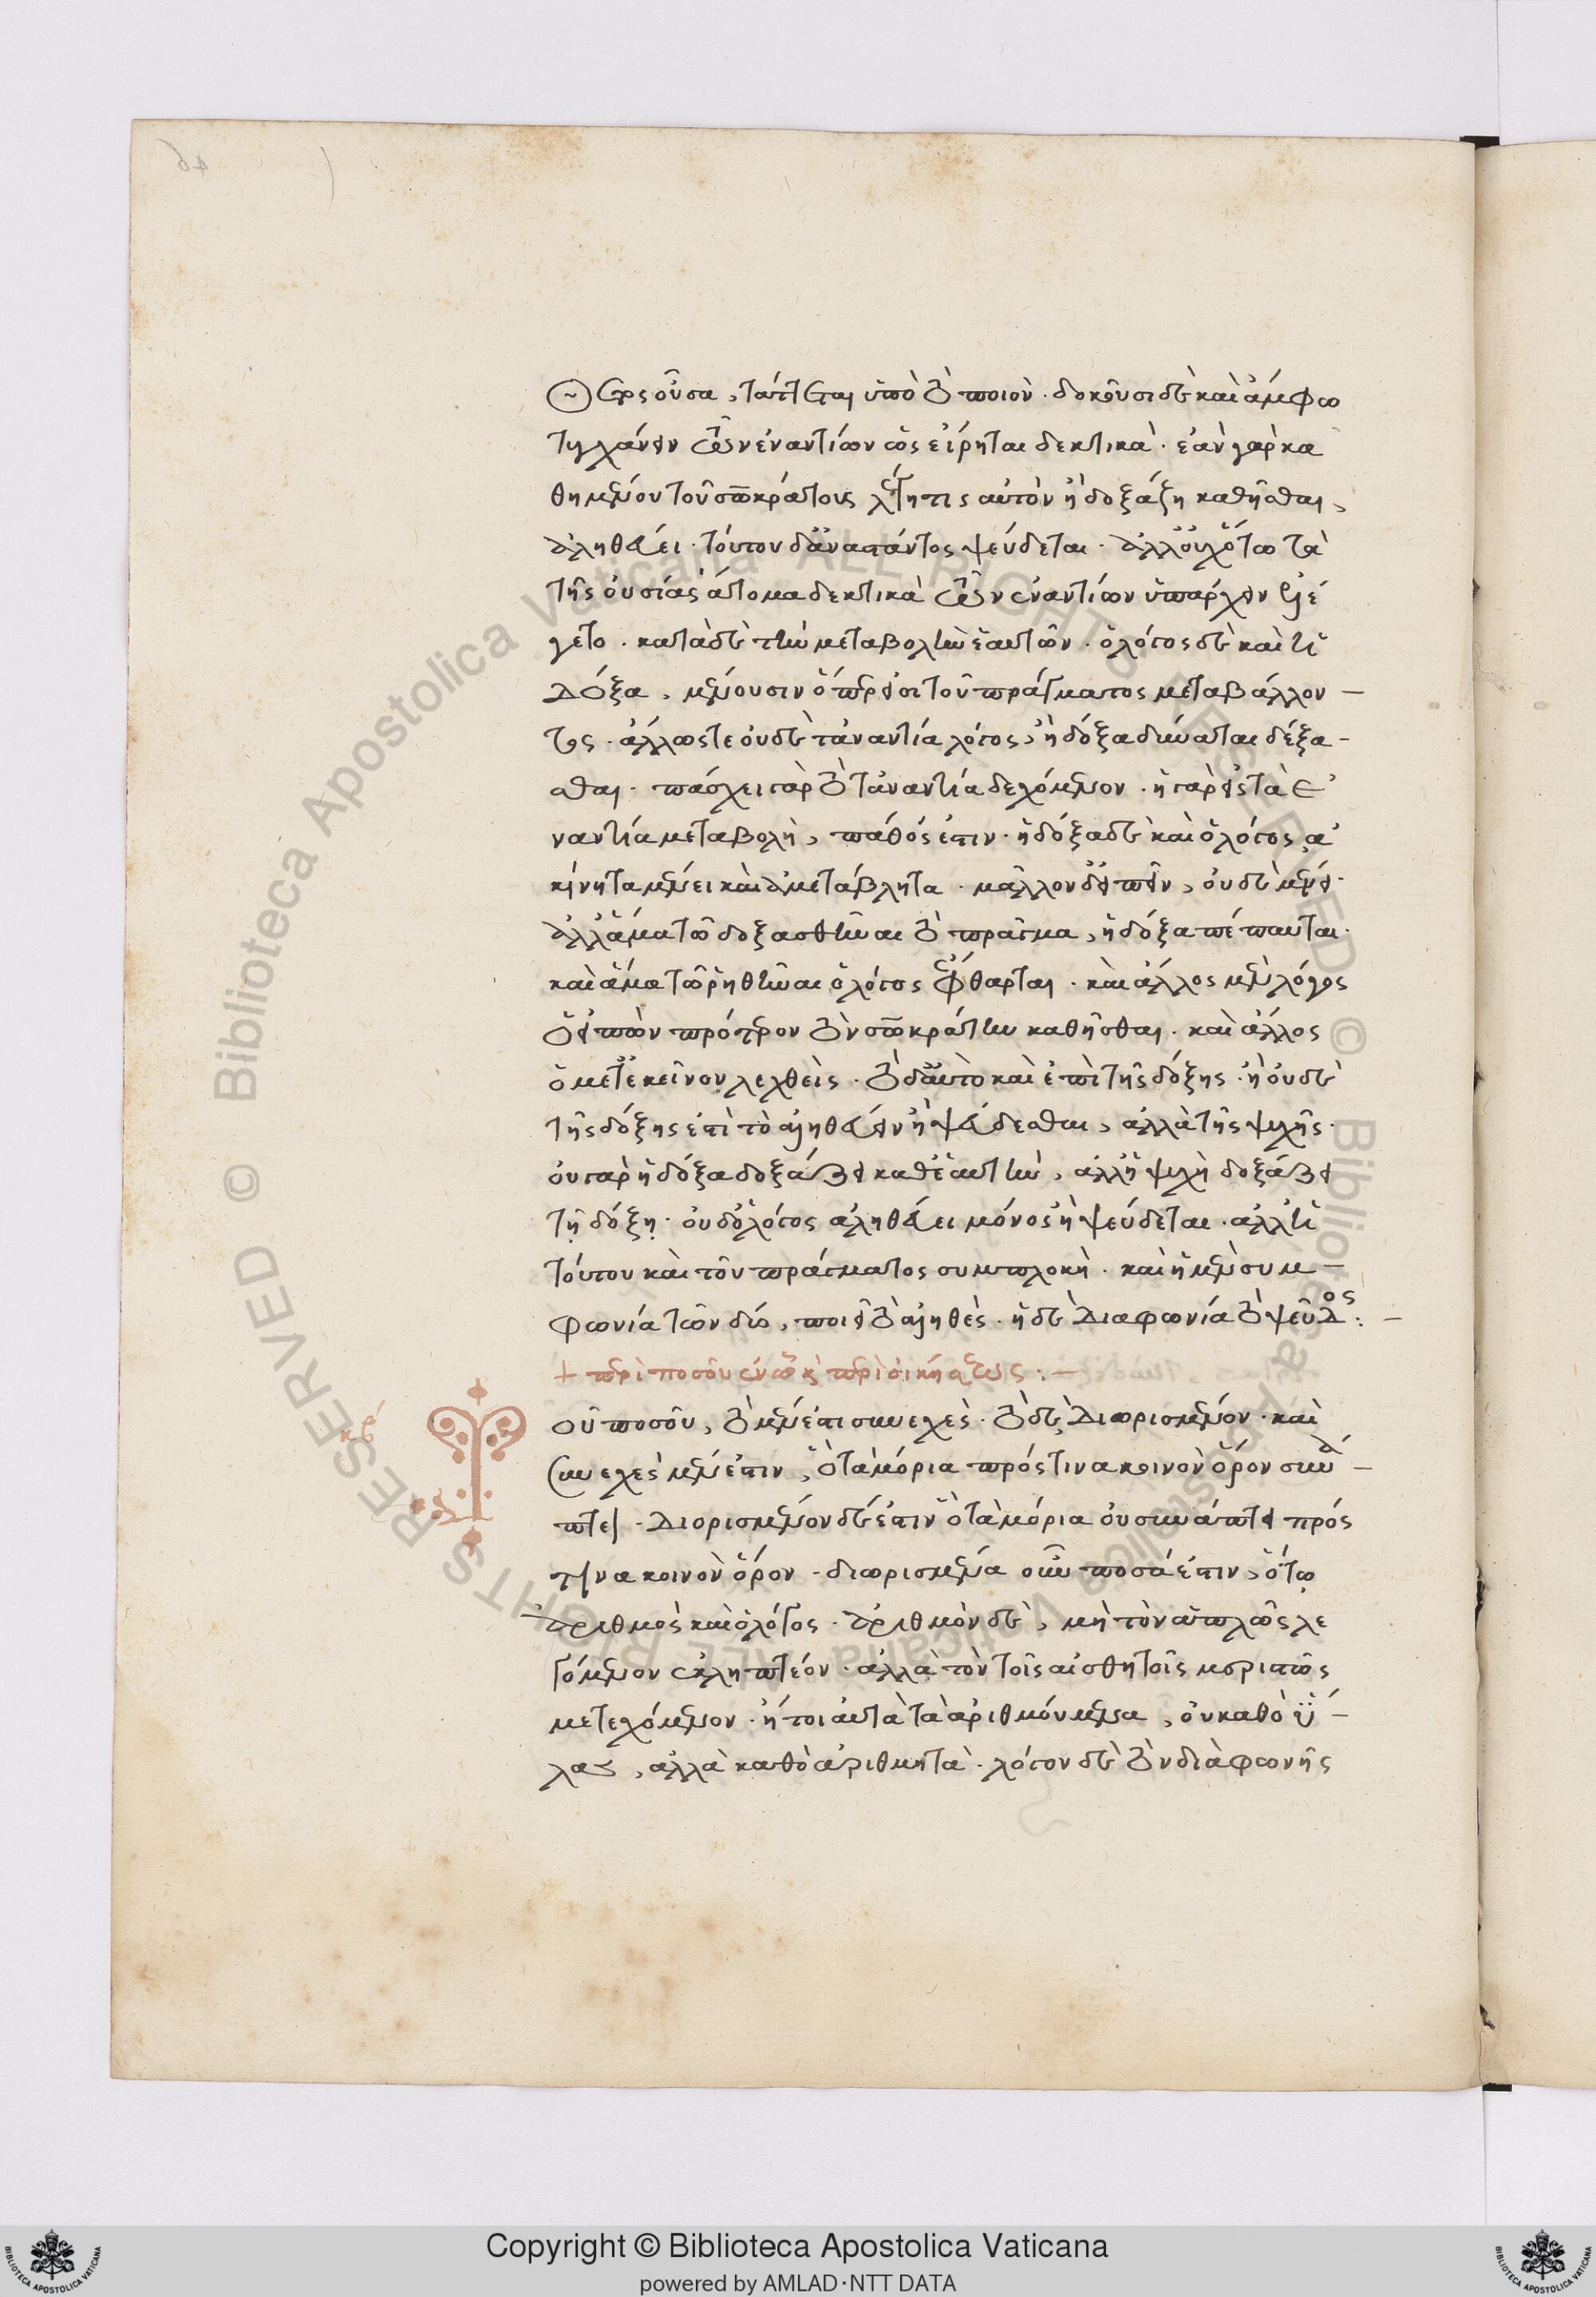 οὖσα, τάττεται ὑπὸ τὸ ποιόν. δοκοῦσι δὲ καὶ ἄμφω
τυγχάνειν τῶν ἐναντίων ὡς εἴρηται δεκτικά. ἐὰν γὰρ κα
θημένου τοῦ σωκράτους λέγῃ τις αὐτὸν ἢ δοξάζῃ καθῆσθαι,
ἀληθεύει. τούτου δ' ἀναστάντος ψεύδεται. ἀλλ' οὐχ οὕτω τὰ
τῆς οὐσίας ἄτομα δεκτικὰ τῶν ἐναντίων ὑπάρχειν ἐλέ
γετο. κατὰ δὲ τὴν μεταβολὴν ἑαυτῶν. ὁ λόγος δὲ καὶ ἡ
δόξα, μένουσιν ὅπερ εἰσὶ τοῦ πράγματος μεταβάλλον–
τος. ἄλλως τε οὐδὲ τἀναντία λόγος, ἢ δόξα δύναται δέξα–
σθαι. πάσχει γὰρ τὸ τἀναντία δεχόμενον. ἡ γὰρ εἰς τὰ ἐ
ναντία μεταβολή, πάθός ἐστιν. ἡ δόξα δὲ καὶ ὁ λόγος, ἀ
κίνητα μένει καὶ ἀμετάβλητα. μᾶλλον δ' εἰπεῖν, οὐδὲ μένει.
ἀλλ' ἅμα τῷ δοξασθῆναι τὸ πρᾶγμα, ἡ δόξα πέπαυται.
καὶ ἅμα τῷ ῥηθῆναι ὁ λόγος ἔφθαρται. καὶ ἄλλος μὲν λόγος
ὁ εἰπὼν πρότερον τὸν σωκράτην καθῆσθαι. καὶ ἄλλος
ὁ μετ' ἐκεῖνον λεχθείς. τὸ δ' αὐτὸ καὶ ἐπὶ τῆς δόξης. ἢ οὐδὲ
τῆς δόξης ἐστὶ τὸ ἀληθεύειν ἢ ψεύδεσθαι, ἀλλὰ τῆς ψυχῆς.
οὐ γὰρ ἡ δόξα δοξάζει καθ' ἑαυτήν, ἀλλ' ἡ ψυχὴ δοξάζει
τῇ δόξῃ. οὐδ' ὁ λόγος ἀληθεύει μόνος ἢ ψεύδεται. ἀλλ' ἡ
τούτου καὶ τοῦ πράγματος συμπλοκή. καὶ ἡ μὲν συμ–
φωνία τῶν δύο, ποιεῖ τὸ ἀληθές. ἡ δὲ διαφωνία τὸ ψεῦδος:–
+ περὶ ποσοῦ ἐν ᾧ καὶ περὶ οἰκήσεως:–
κβ
οῦ ποσοῦ, τὸ μέν ἐστι συνεχές. τὸ δὲ διωρισμένον. καὶ
συνεχὲς μέν ἐστιν, οὗ τὰ μόρια πρός τινα κοινὸν ὅρον συνά–
πτει. διορισμένον δέ ἐστιν οὗ τὰ μόρια οὐ συνάπτει πρός
τινα κοινὸν ὅρον. διωρισμένα οὖν ποσά ἐστιν, ὅ τε
ἀριθμὸς καὶ ὁ λόγος. ἀριθμὸν δὲ, μὴ τὸν ἁπλῶς λε
γόμενον ἐκληπτέον. ἀλλὰ τὸν τοῖς αἰσθητοῖς μεριστῶς
μετεχόμενον. ἤτοι αὐτὰ τὰ ἀριθμούμενα, οὐ καθὸ ξύ–
λα, ἀλλὰ καθὸ ἀριθμητά. λόγον δὲ τὸν διὰ φωνῆς
Copyright © Biblioteca Apostolica Vaticana
powered by AMLAD·NTT DATA